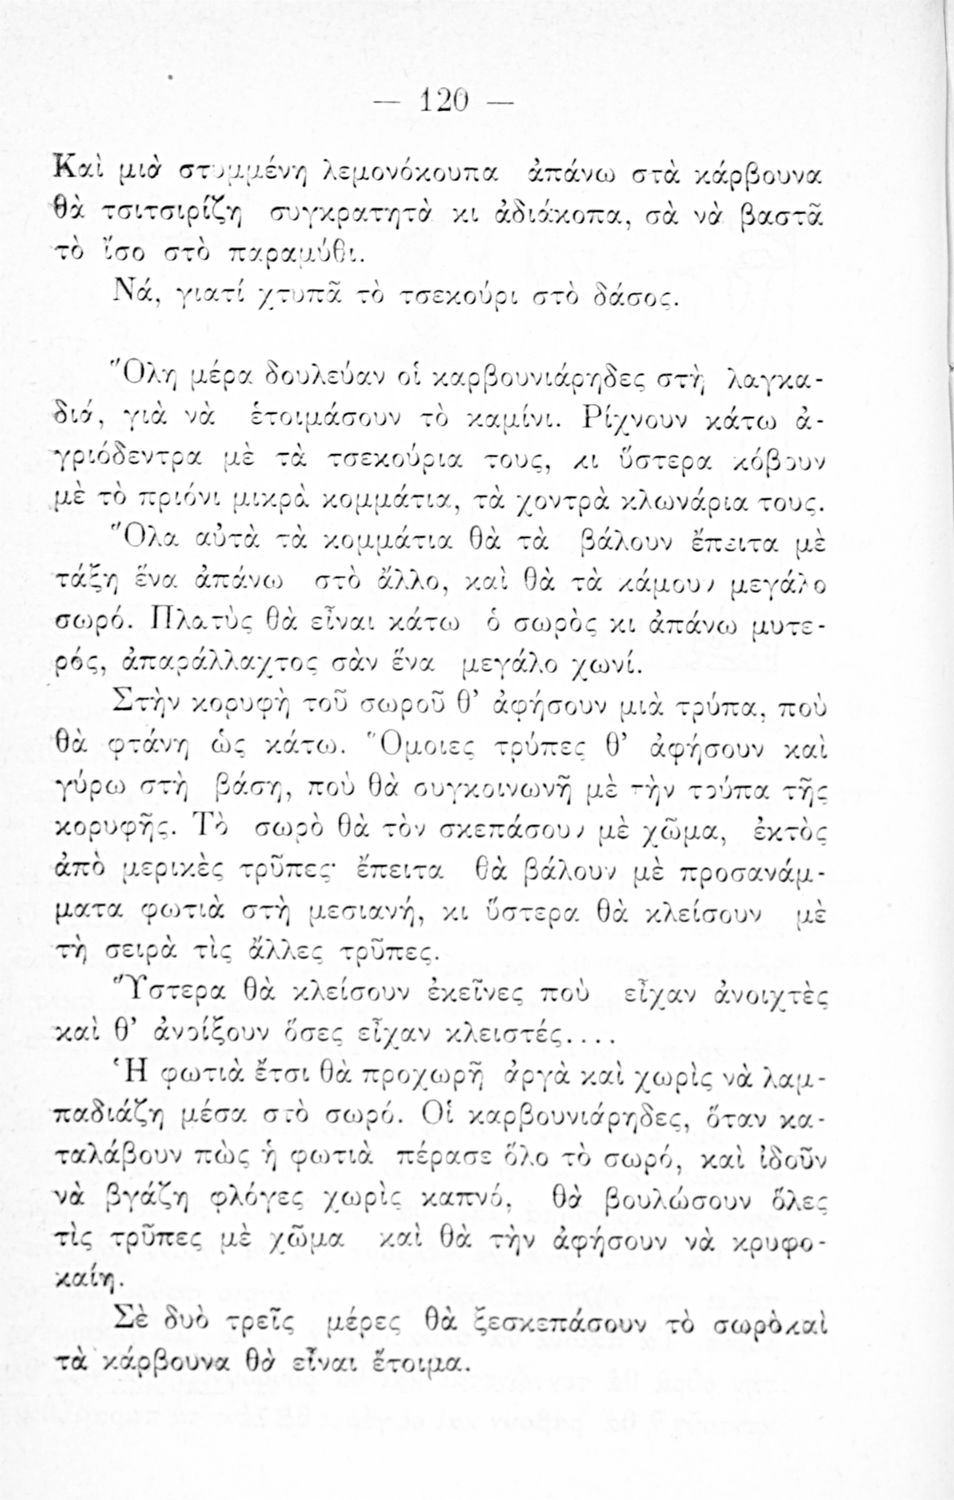 — 120 —
Καὶ μιὰ στυμμένη λεμονόκουπα ἀπάνω στὰ κάρβουνα
θὰ τσιτσιρίζη συγκρατητὰ κι ἀδιάκοπα, σὰ νὰ βαστᾶ
τὸ ἴσο στὸ παραμύθι.
Νά, γιατί χτυπᾶ τὸ τσεκούρι στὸ δάσος.
Ὅλη μέρα δουλεύαν οἱ καρβουνιάρηδες στὴ λαγκα-
διά, γιὰ νὰ ἑτοιμάσουν τὸ καμίνι. Ρίχνουν κάτω ἀ-
γριόδεντρα μὲ τὰ τσεκούρια τους, κι ὕστερα κόβουν
μὲ τὸ πριόνι μικρὰ κομμάτια, τὰ χοντρὰ κλωνάρια τους.
Ὅλα αὐτὰ τὰ κομμάτια θὰ τὰ βάλουν ἔπειτα μὲ
τάξη ἕνα ἀπάνω στὸ ἄλλο, καὶ θὰ τὰ κάμουν μεγάλο
σωρό. Πλατὺς θὰ εἶναι κάτω ὁ σωρὸς κι ἀπάνω μυτε-
ρός, ἀπαράλλαχτος σὰν ἕνα μεγάλο χωνί.
Στὴν κορυφὴ τοῦ σωροῦ θ’ ἀφήσουν μιὰ τρύπα, ποὺ
θὰ φτάνη ὡς κάτω. Ὅμοιες τρύπες θ’ ἀφήσουν καὶ
γύρω στὴ βάση, ποὺ θὰ συγκοινωνῆ μὲ τὴν τρύπα τῆς
κορυφῆς. Τὸ σωρὸ θὰ τὸν σκεπάσουν μὲ χῶμα, ἐκτὸς
ἀπὸ μερικὲς τρῦπες· ἔπειτα θὰ βάλουν μὲ προσανάμ-
ματα φωτιὰ στὴ μεσιανή, κι ὕστερα θὰ κλείσουν μὲ
τὴ σειρὰ τὶς ἄλλες τρῦπες.
Ὕστερα θὰ κλείσουν ἐκεῖνες ποὺ εἶχαν ἀνοιχτὲς
καὶ θ’ ἀνοίξουν ὅσες εἶχαν κλειστές....
Ἡ φωτιὰ ἔτσι θὰ προχωρῆ ἀργὰ καὶ χωρὶς νὰ λαμ-
παδιάζη μέσα στὸ σωρό. Οἱ καρβουνιάρηδες, ὅταν κα-
ταλάβουν πὼς ἡ φωτιὰ πέρασε ὅλο τὸ σωρό, καὶ ἰδοῦν
νὰ βγάζη φλόγες χωρὶς καπνό, θὰ βουλώσουν ὅλες
τὶς τρῦπες μὲ χῶμα καὶ θὰ τὴν ἀφήσουν νὰ κρυφο-
καίη.
Σὲ δυὸ τρεῖς μέρες θὰ ξεσκεπάσουν τὸ σωρὸ καὶ
τὰ κάρβουνα θὰ εἶναι ἕτοιμα.